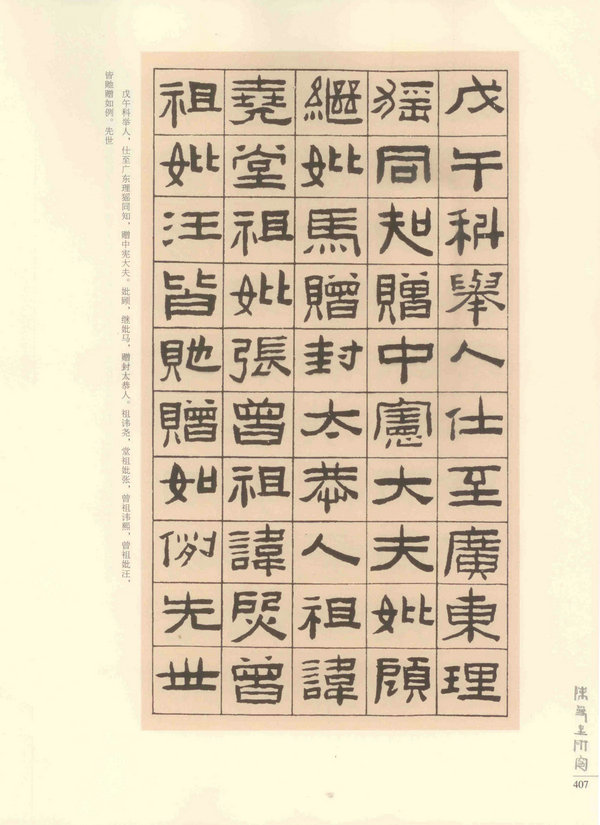 戊午科舉人仕至廣東理
猺同知贈中憲大夫妣顧
繼妣馬贈封太恭人祖諱
堯堂祖妣張曾祖諱熙曾
祖妣汪皆貤贈如例先世
戊午科举人，仕至广东理猺同知，赠中宪大夫。妣顾，继妣马，赠封太恭人。祖讳尧，堂祖妣张，曾祖讳熙，曾祖妣汪，
皆貤赠如例。先世
407